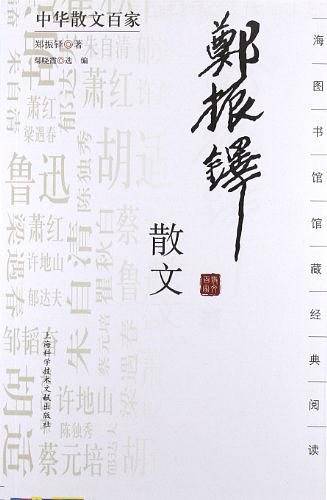 中华散文百家
郑振铎◎著
鄢晓霞◎选 编
鄭振鐸
散文
海图书馆馆藏经典阅读
朱自清
萧红
胡
萧红
梁遇春
鲁迅
胡适
陈独秀
萧红
许地山
郁达夫
梁遇春
朱自清
蔡元培
鲁迅
邹韬奋
胡适
许地山
陈独秀
蔡元培
郁达夫
上海科学技术文献出版社